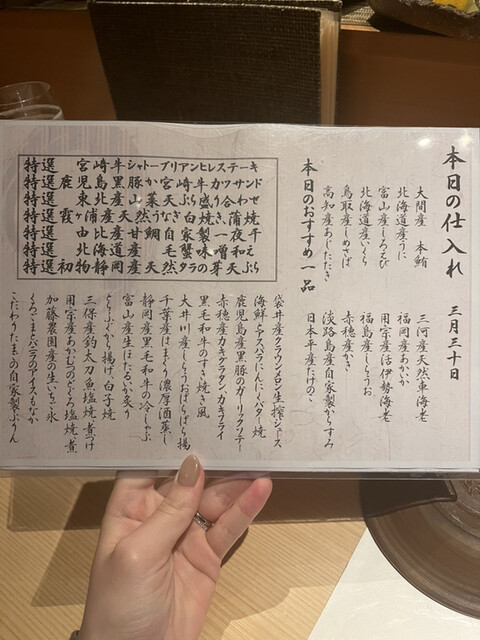 本日の仕入れ 三月三十日
大間産 本鮪
北海道産うに
富山産しろえび
北海道産いくら
鳥取産しめさば
高知産あじたたき
三河産天然車海老
福岡産あかいか
用宗産活伊勢海老
福島産しらうお
赤穂産かき
淡路島産自家製からすみ
日本平産たけのこ
本日のおすすめ一品
特選 宮崎牛シャトーブリアンヒレステーキ
特選 鹿児島黒豚か宮崎牛カツサンド
特選 東北山菜天盛り合わせ
特選 霞ヶ浦産天然うなぎ白焼き、蒲焼
特選 由比産甘鯛自家製一夜干
特選 北海道産毛蟹味噌和え
特選 初物静岡産天然タラの芽天ぷら
袋井産クラウンメロン生搾ジュース
海鮮とアスパラにんにくバター焼
鹿児島産黒豚のガーリックソテー
赤穂産カキグラタン・カキフライ
黒毛和牛のすき焼き風
大井川産しらうおぱらぱら揚
千葉産はまぐり濃厚酒蒸し
静岡産黒毛和牛の冷しゃぶ
富山産生ほたるいか炙り
とらふぐから揚げ 白子焼
三保産釣太刀魚塩焼 煮つけ
用宗産あかむつのどぐろ塩焼 煮
加藤農園産の生いちご氷
くろごまとバニラのアイスもなか
こだわりたまごの自家製ぷりん